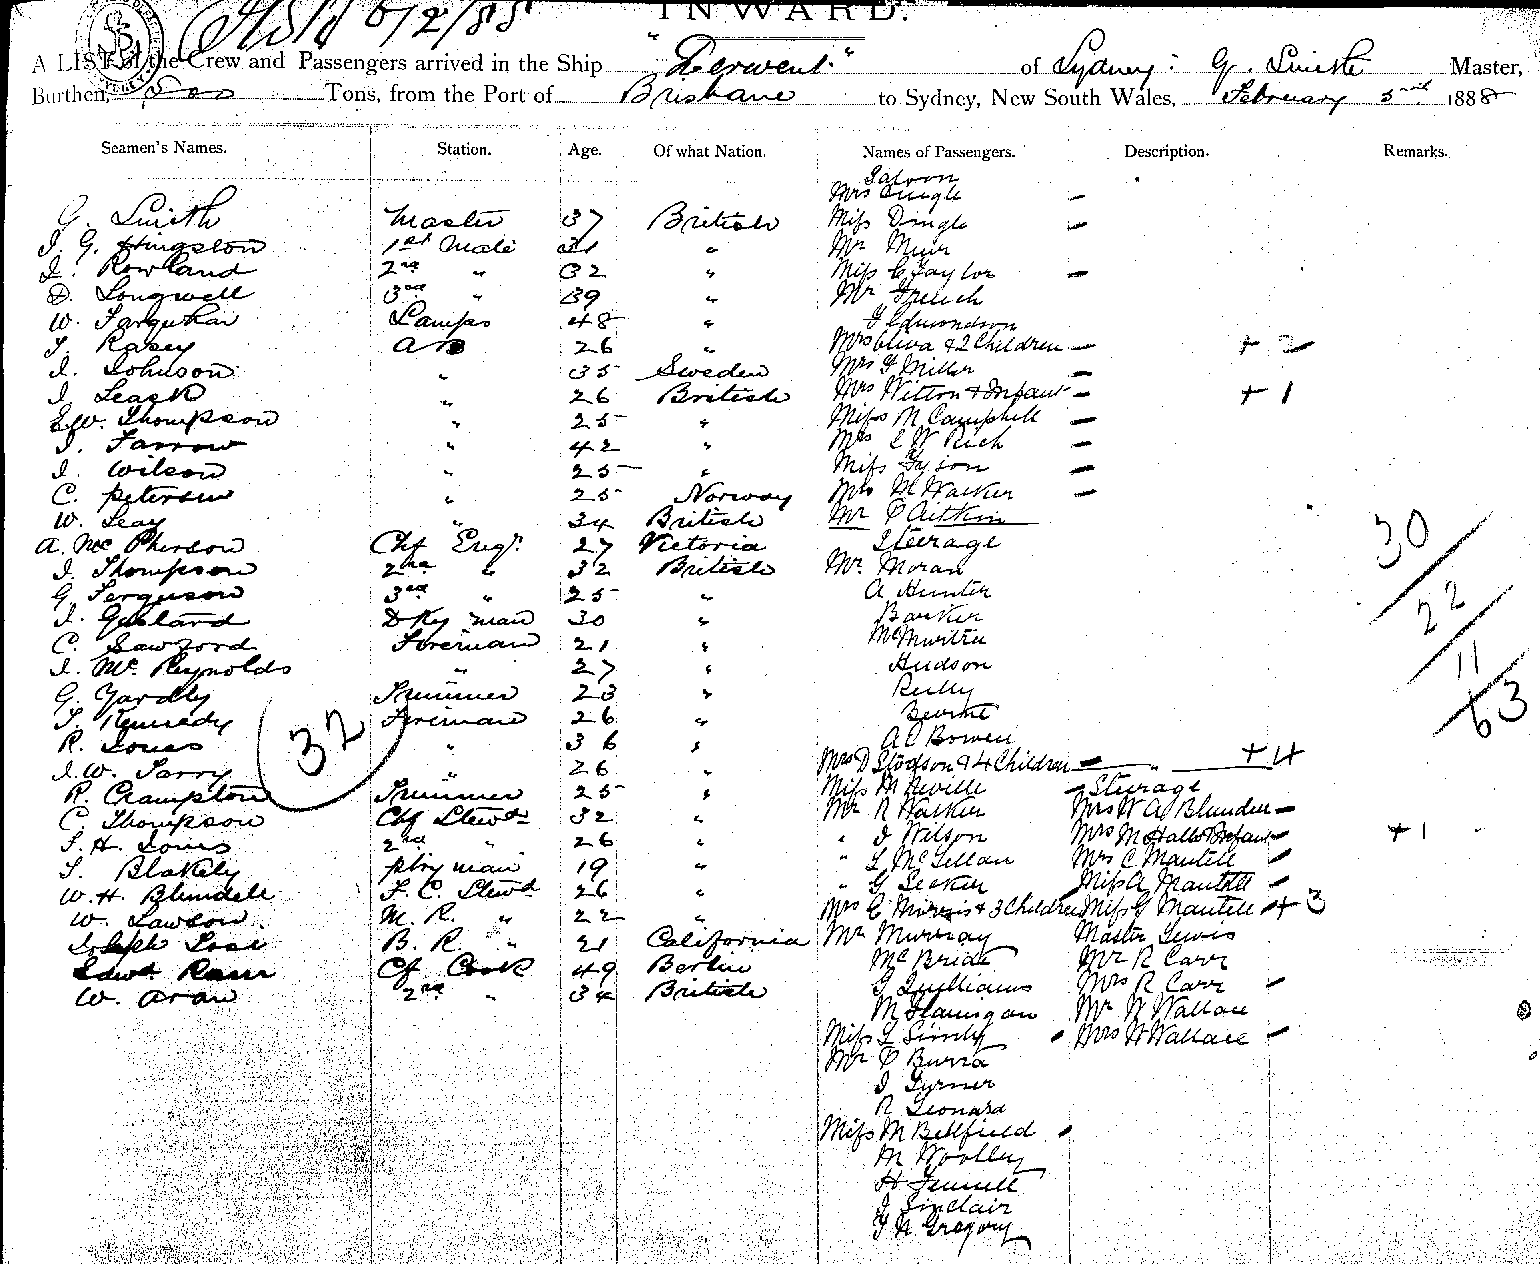 Held 6/2/88
INWARD.
A LIST of the Crew and Passengers arrived in the Ship "Derwent" of Sydney: G. Smith Master,
Burthen, Tons, from the Port of Brisbane to Sydney, New South Wales, February 5 1888
Seamen's Names. Station. Age. Of what Nation. Names of Passengers. Description. Remarks.
Saloon
Mrs Dingle -
G. Smith Master 37 British Miss Dingle -
J. G. Hingston 1st Mate 31 " Mr Muir
J. Rowland 2nd " 32 " Miss C Taylor -
D. Longwell 3rd " 39 " Mr French
W. Farquhar Lamps 48 " Edmondson
T. Kasey AB 26 " Mrs Oliva & 2 Children - + 2
J. Johnson " 35 Sweden Mrs G Miller -
J. Leask " 26 British Mrs Witton & Infant - + 1
E.W. Thompson " 25 " Miss M Campbell -
J. Farrow " 42 " Mrs C W Rich -
J. Wilson " 25 " Miss Tyson -
C. Petersen " 25 Norway Mrs M Walker -
W. Leay " 34 British Mr C Aitkin
A. McPherson Chf Engr. 27 Victoria Steerage
J. Thompson 2nd " 32 British Mr. Moran
G. Ferguson 3rd " 25 " A Hunter
J. Dky man 30 " Barker
C. Sawford Fireman 21 " McMurtrie
J. McReynolds " 27 " Hudson
G. Yardly Trimmer 23 " Reilly
T. Kennedy Fireman 26 " Bourne
R. Jones " 36 " A C Bowen
J.W. Tarry " 26 " Mrs D Stodson & 4 Children - " + 4
R. Crampton Trimmer 25 " Miss M Neville - Steerage
C. Thompson Chf Stewd 32 " Mr R Walker Mrs W A Blunden -
T. H. Jones 2nd " 26 " " J Wilson Mrs M Hall & Infant - + 1
T. Blakely ptry man 19 " " L McLellan Mrs C Mantell -
W.H. Blundell F. C. Stewd 26 " " G Seaker Miss A Mantell -
W. Lawson M. R. " 22 " Mrs C Morris & 3 Children Miss G Mantell - + 3
Joseph B. R. " 21 California Mr Murray Master Lewis
Edwd Cf Cook 49 Berlin McBride Mr R Carr
W. Aran 2nd " 34 British G Williams Mrs R Carr -
M Flanigan Mr W Wallace
Miss L - Mrs W Wallace -
Mr C Burra
J Turner
R Leonard
Miss M Bellfield -
M Woolley
H Fennell
J Sinclair
T H Gregory
32
30
22
11
63